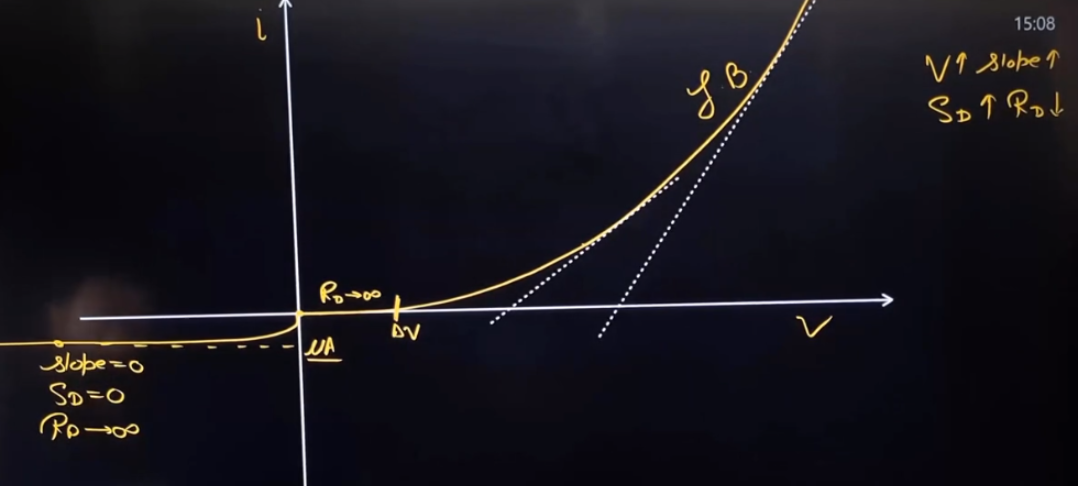 15:08
i
V↑ slope↑
S_D↑ R_D↓
f.B
R_D→∞
ΔV
V
μA
slope=0
S_D=0
R_D→∞